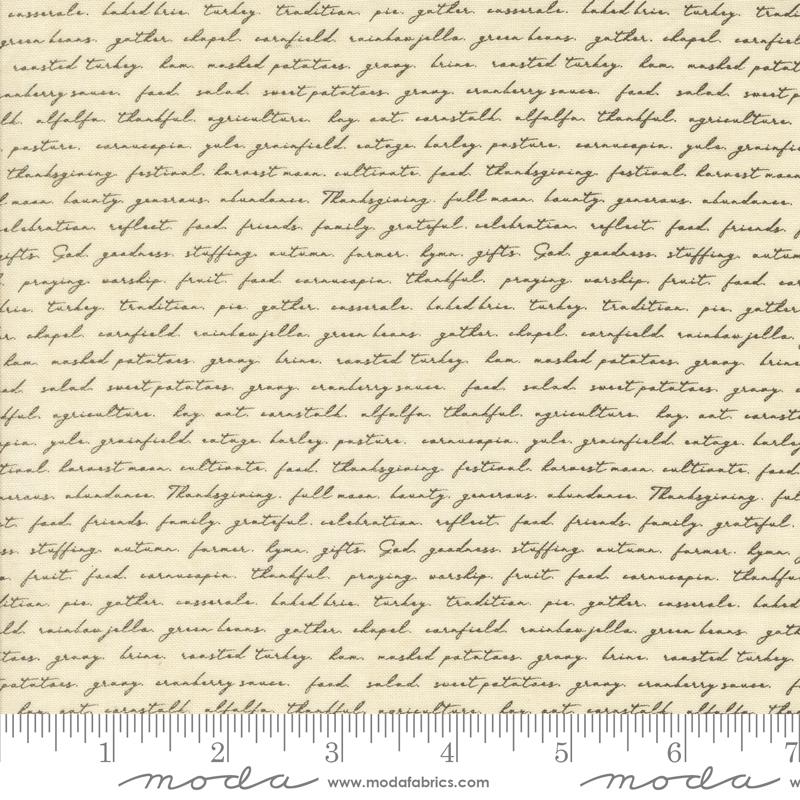 casserole. baked brie. turkey. tradition. pie. gather. casserole. baked brie. turkey.
green beans. gather. chapel. cornfield. rainbow jello. green beans. gather. chapel.
roasted turkey. ham. mashed potatoes. gravy. brine. roasted turkey. ham. mashed
cranberry sauce. food. salad. sweet potatoes. gravy. cranberry sauce. food. salad. sweet
alfalfa. thankful. agriculture. hay. oat. cornstalk. alfalfa. thankful. agriculture.
pasture. cornucopia. yule. grainfield. cotage. barley. pasture. cornucopia. yule.
thanksgiving. festival. harvest moon. cultivate. food. thanksgiving. festival. harvest moon
moon. bounty. generous. abundance. Thanksgiving. full moon. bounty. generous. abundance.
celebration. reflect. food. friends. family. grateful. celebration. reflect. food. friends.
gifts. God. goodness. stuffing. autumn. farmer. hymn. gifts. God. goodness. stuffing.
praying. worship. fruit. food. cornucopia. thankful. praying. worship. fruit. food.
brie. turkey. tradition. pie. gather. casserole. baked brie. turkey. tradition. pie. gather
chapel. cornfield. rainbow jello. green beans. gather. chapel. cornfield. rainbow jello.
ham. mashed potatoes. gravy. brine. roasted turkey. ham. mashed potatoes. gravy. brine
salad. sweet potatoes. gravy. cranberry sauce. food. salad. sweet potatoes. gravy.
agriculture. hay. oat. cornstalk. alfalfa. thankful. agriculture. hay. oat.
yule. grainfield. cotage. barley. pasture. cornucopia. yule. grainfield. cotage.
harvest moon. cultivate. food. thanksgiving. festival. harvest moon. cultivate. food
abundance. Thanksgiving. full moon. bounty. generous. abundance. Thanksgiving.
food. friends. family. grateful. celebration. reflect. food. friends. family. grateful.
stuffing. autumn. farmer. hymn. gifts. God. goodness. stuffing. autumn. farmer. hymn.
fruit. food. cornucopia. thankful. praying. worship. fruit. food. cornucopia.
pie. gather. casserole. baked brie. turkey. tradition. pie. gather. casserole. baked
rainbow jello. green beans. gather. chapel. cornfield. rainbow jello. green beans.
gravy. brine. roasted turkey. ham. mashed potatoes. gravy. brine. roasted turkey.
potatoes. gravy. cranberry sauce. food. salad. sweet potatoes. gravy. cranberry sauce.
hay. oat. cornstalk. alfalfa. thankful. agriculture. hay. oat. cornstalk. alfalfa.
1 2 3 4 5 6 7
moda www.modafabrics.com moda